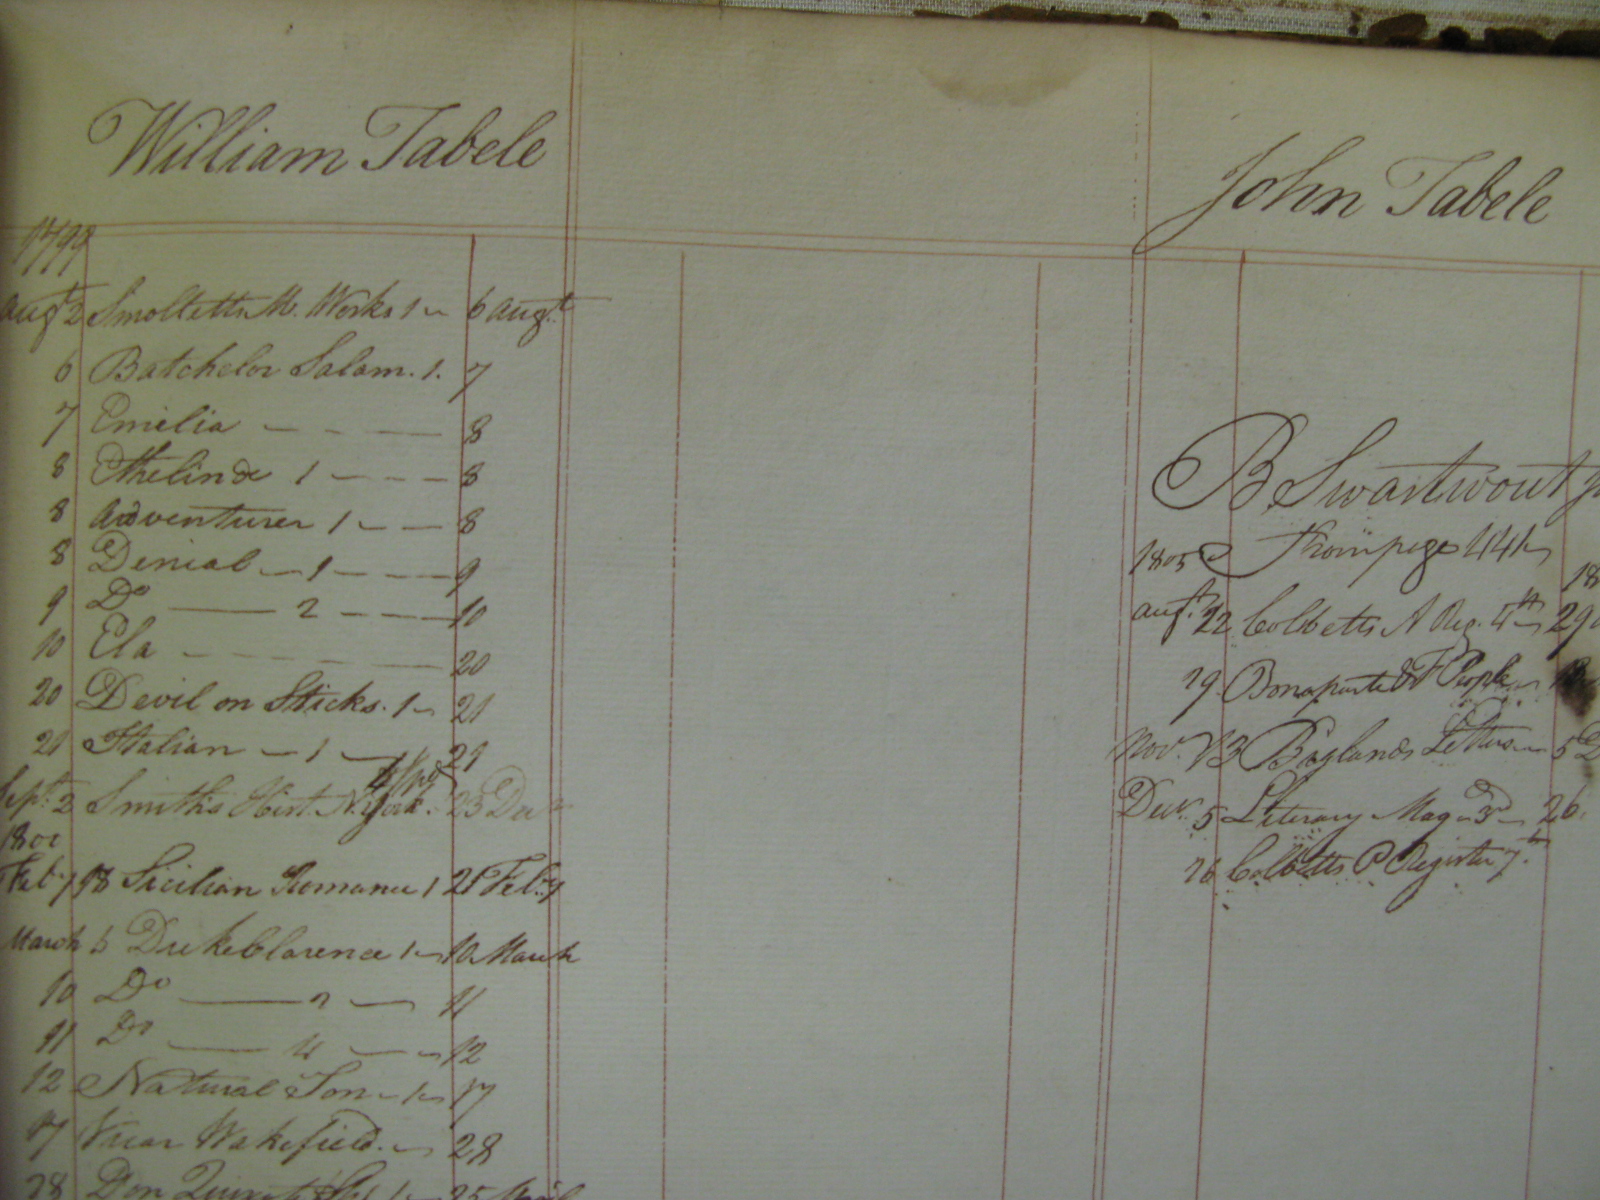 William Tabele
1799
Augt 2 Smolletts M. Works 1 6 Augt
6 Batchelor Salam. 1. 7
7 Emelia 8
8 Ethelinde 1 8
8 Adventurer 1 8
8 Denial 1 9
9 Do 2 10
10 Ela 20
20 Devil on Sticks. 1 21
21 Italian 1 21
Sept. 2 Smith's Hist. N. York. 23 Decr
1801
Feby 18 Sicilian Romance 1 21 Feby
March 5 Duke Clarence 1 10 March
10 Do 2 11
11 Do 4 12
12 Natural Son 1 17
17 Vicar Wakefield. 28
28 Don 1 25 April
John Tabele
B. Swartwout
1805 From page 441
Augt. 22 Cobbetts A Reg. 29
29 Bonaparte & F People
Nov. 13 Letters 5 D
Decr. 5 Literary Mag 3d 26
26 Cobbetts P Register 7th